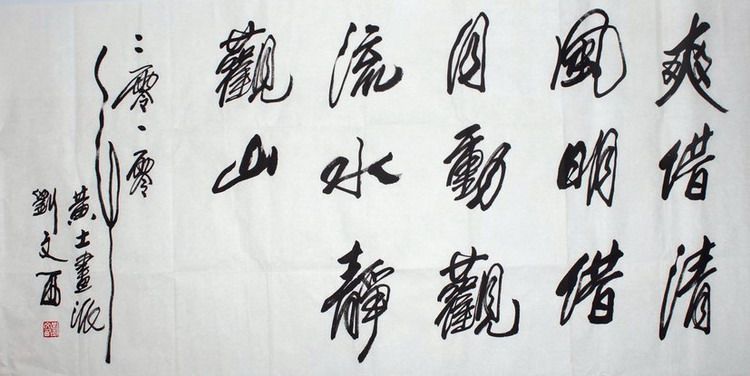 爽借清
風明借
月動觀
流水靜
觀山
二零一零年
黃土畫派
劉文西